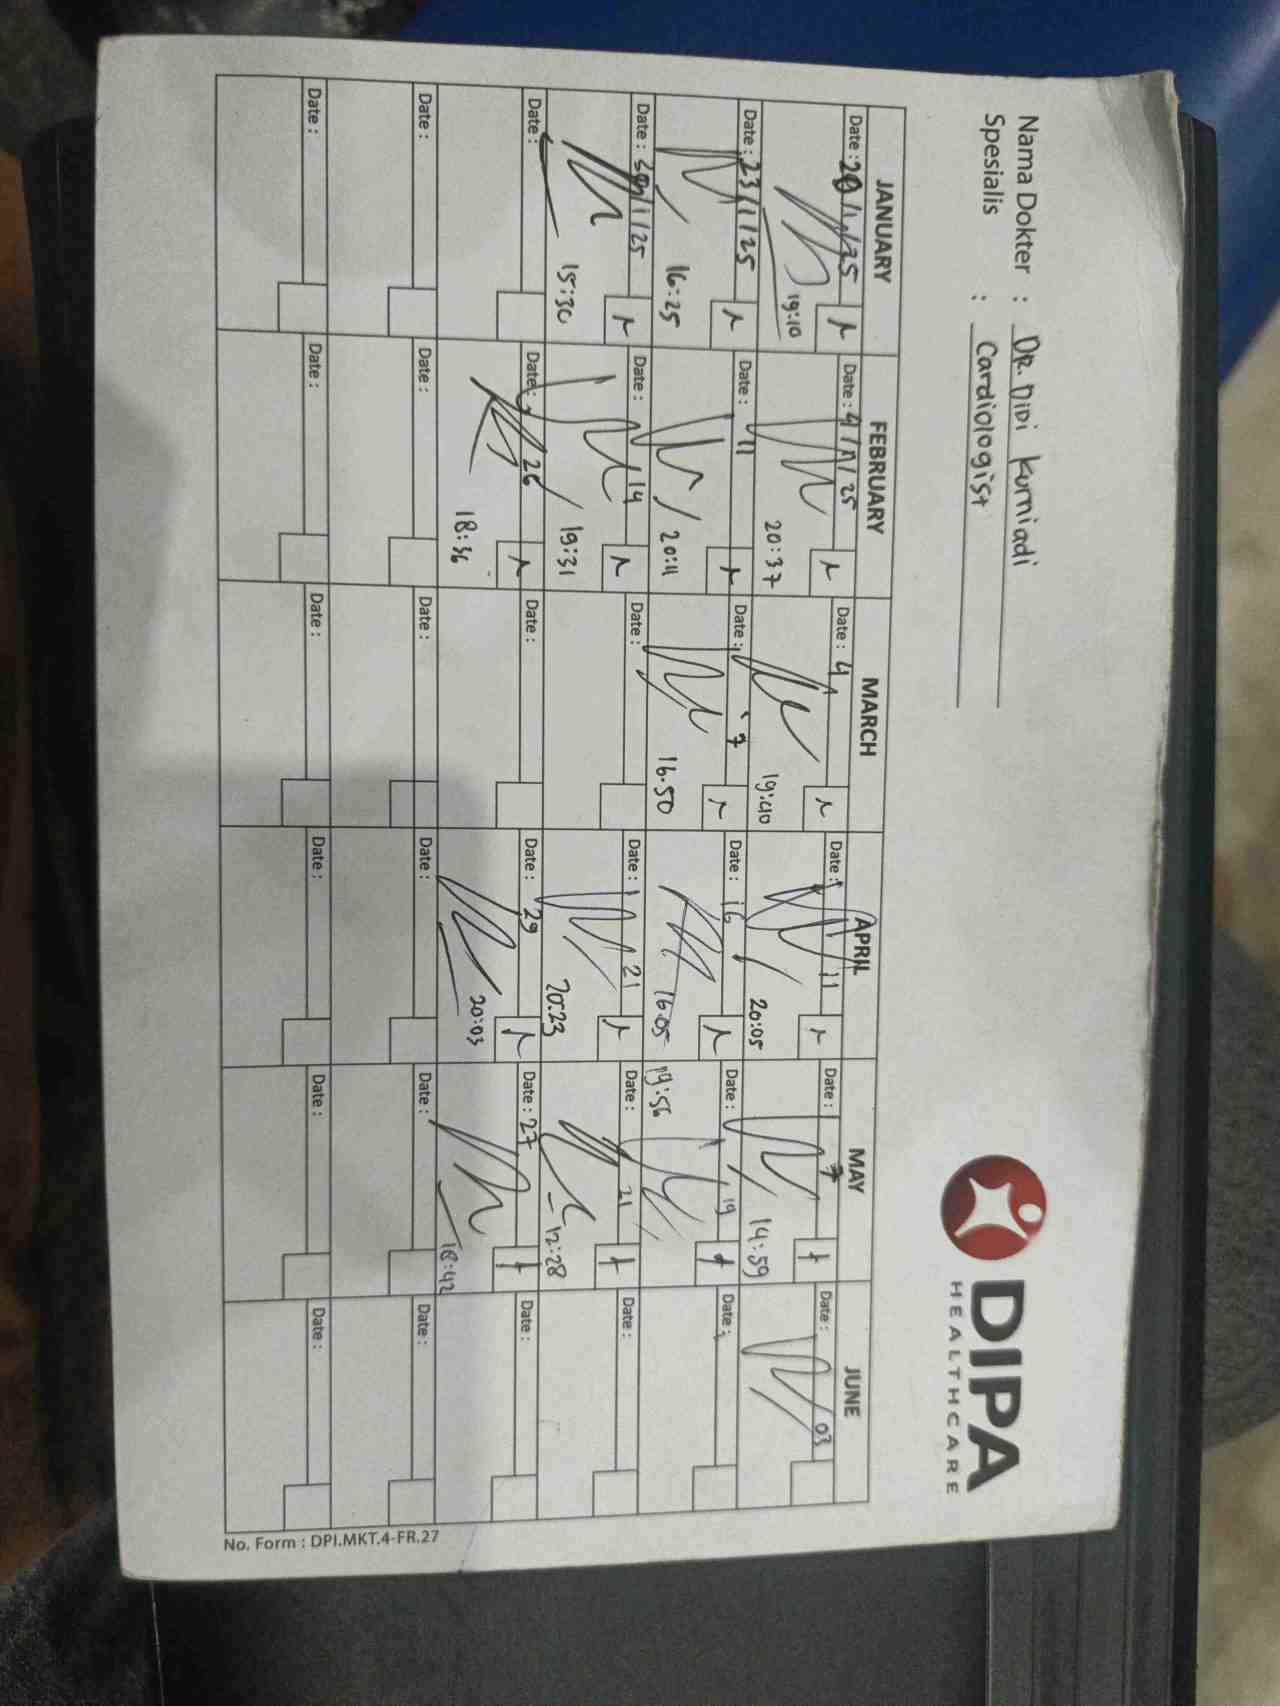 Nama Dokter : DR. Didi Kurniadi
Spesialis : Cardiologist
DIPA
HEALTHCARE
JANUARY FEBRUARY MARCH APRIL MAY JUNE
Date : Date : 4/2/25 Date : 4 Date : 11 Date : 7 Date : 03
19:10 20:37 19:40 20:05 14:59
Date : 23/1/25 Date : 11 Date : 7 Date : 16 Date : 19 Date :
16:25 20:11 16.50 16.05 19:56
Date : 30/1/25 Date : 14 Date : Date : 21 Date : 21 Date :
15:30 19:31 20:23 12:28
Date : Date : 26 Date : Date : 29 Date : 27 Date :
18:36 20:03 18:42
Date : Date : Date : Date : Date : Date :
Date : Date : Date : Date : Date : Date :
No. Form : DPI.MKT.4-FR.27